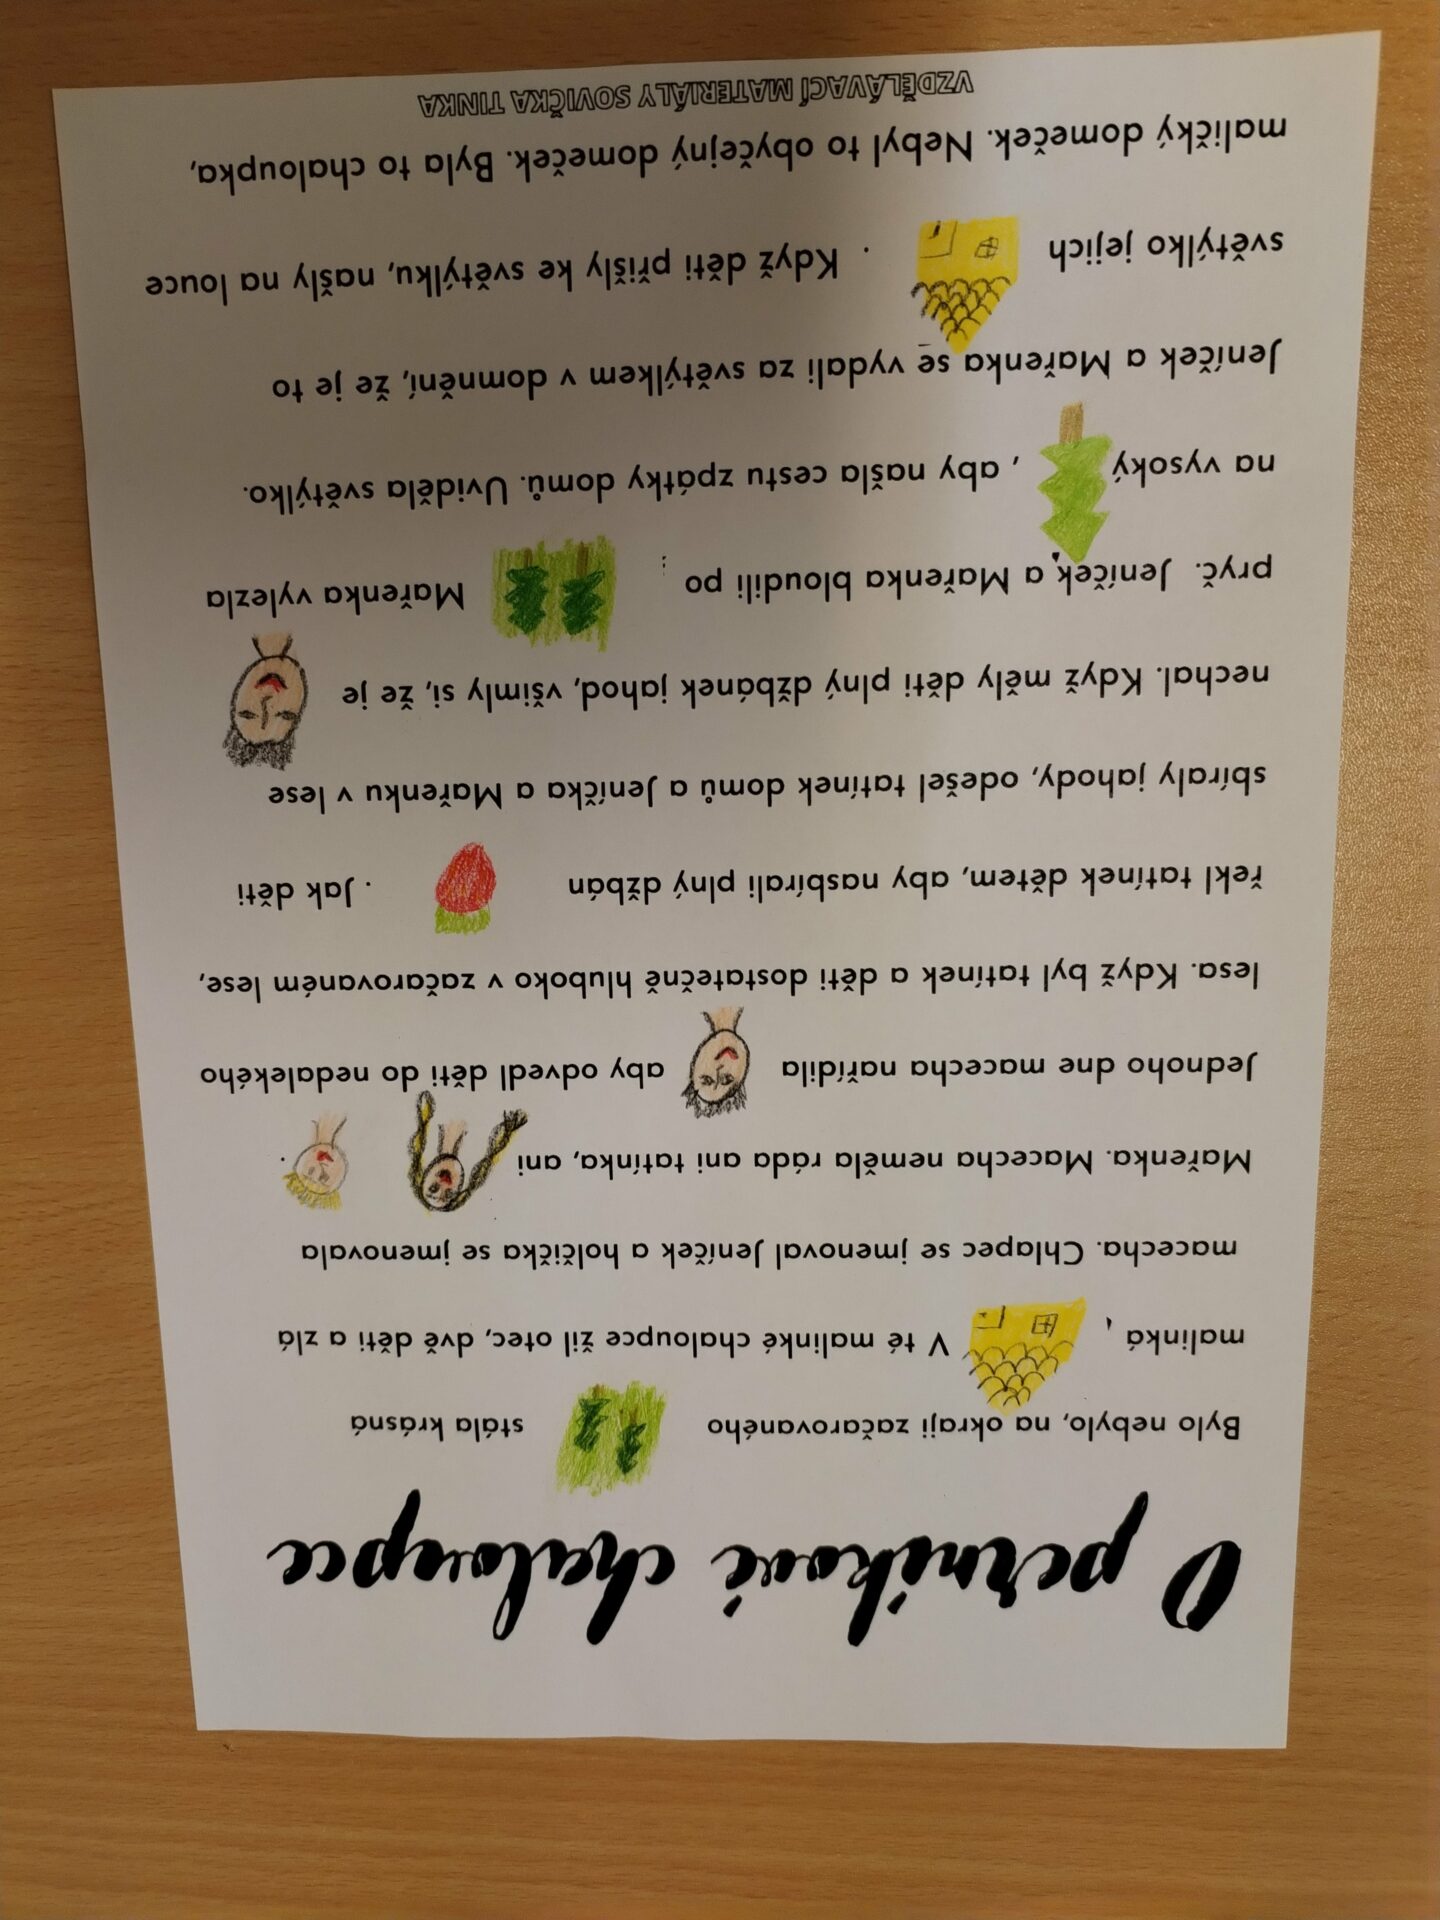 O perníkové chaloupce
Bylo nebylo, na okraji začarovaného stála krásná
malinká , V té malinké chaloupce žil otec, dvě děti a zlá
macecha. Chlapec se jmenoval Jeníček a holčička se jmenovala
Mařenka. Macecha neměla ráda ani tatínka, ani .
Jednoho dne macecha nařídila aby odvedl děti do nedalekého
lesa. Když byl tatínek a děti dostatečně hluboko v začarovaném lese,
řekl tatínek dětem, aby nasbírali plný džbán . Jak děti
sbíraly jahody, odešel tatínek domů a Jeníčka a Mařenku v lese
nechal. Když měly děti plný džbánek jahod, všimly si, že je
pryč. Jeníček a Mařenka bloudili po . Mařenka vylezla
na vysoký , aby našla cestu zpátky domů. Uviděla světýlko.
Jeníček a Mařenka se vydali za světýlkem v domnění, že je to
světýlko jejich . Když děti přišly ke světýlku, našly na louce
maličký domeček. Nebyl to obyčejný domeček. Byla to chaloupka,
VZDĚLÁVACÍ MATERIÁLY SOVIČKA TINKA